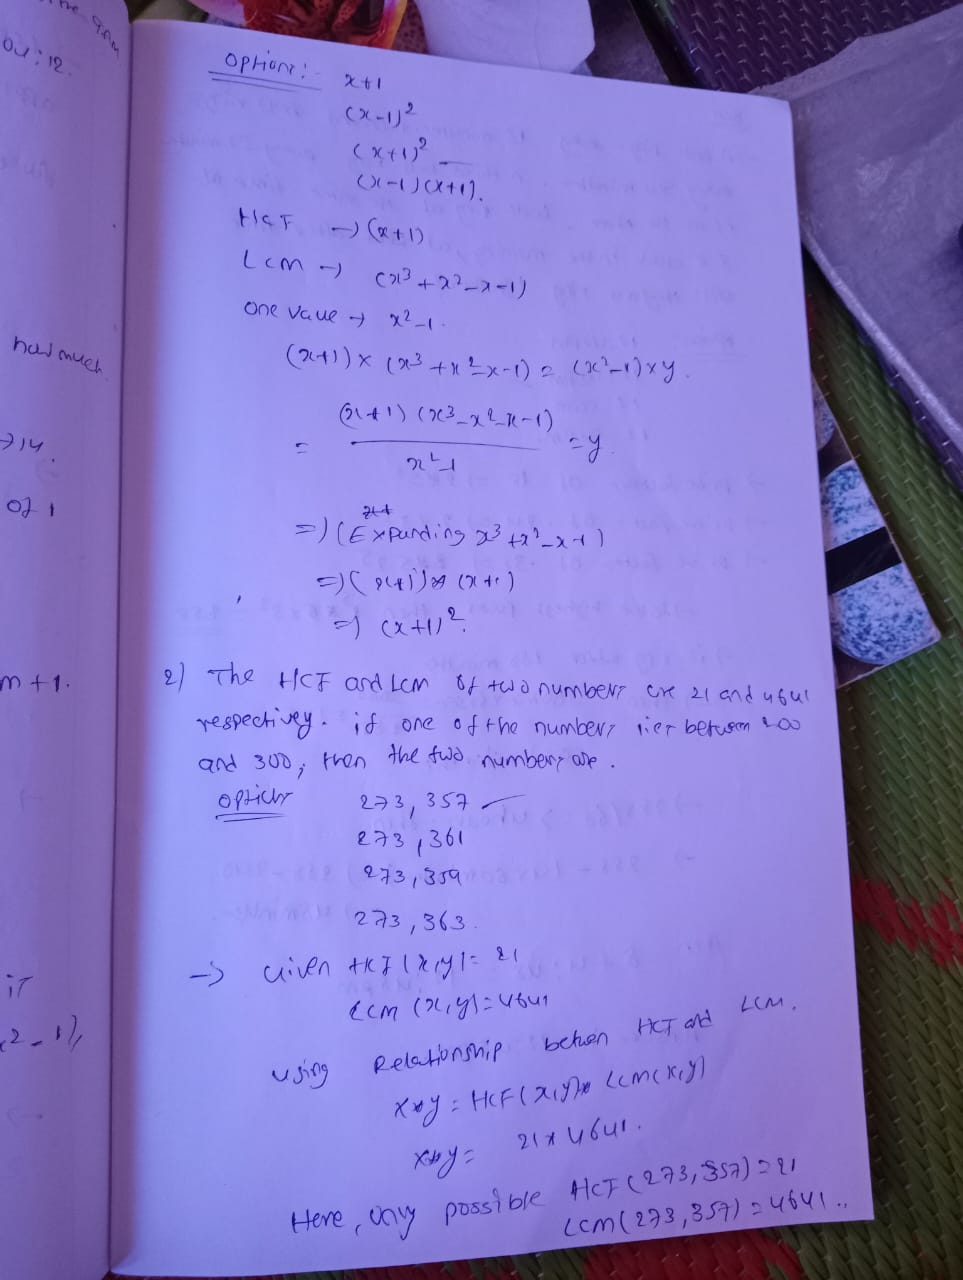 ou; 12.
has much
214.
of 1
m+1.
is
x²-1),
Options:-
x+1
(x-1)²
(x+1)²
(x-1)(x+1).
HCF → (x+1)
Lcm → (x³+x²-x-1)
one vaue → x²-1.
(x+1)) x (x³+x²-x-1) = (x²-1) x y.
= (x+1) (x³-x²-x-1) / x²-1 = y.
=) (Expanding x³+x²-x-1)
=) (x+1) x (x+1)
=) (x+1)².
2) The HCF and Lcm of two numbers are 21 and 4641
respectivey. if one of the numbers lies between 200
and 300, then the two numbers are.
option
273, 357
273, 361
273, 359
273, 363.
→ Given HCF (x,y) = 21
Lcm (x,y) = 4641
using Relationship between HCF and LCM.
x*y = HCF (x,y) * Lcm(x,y)
x*y = 21 * 4641.
Here, ony possible HCF (273, 357) = 21
Lcm (273, 357) = 4641..